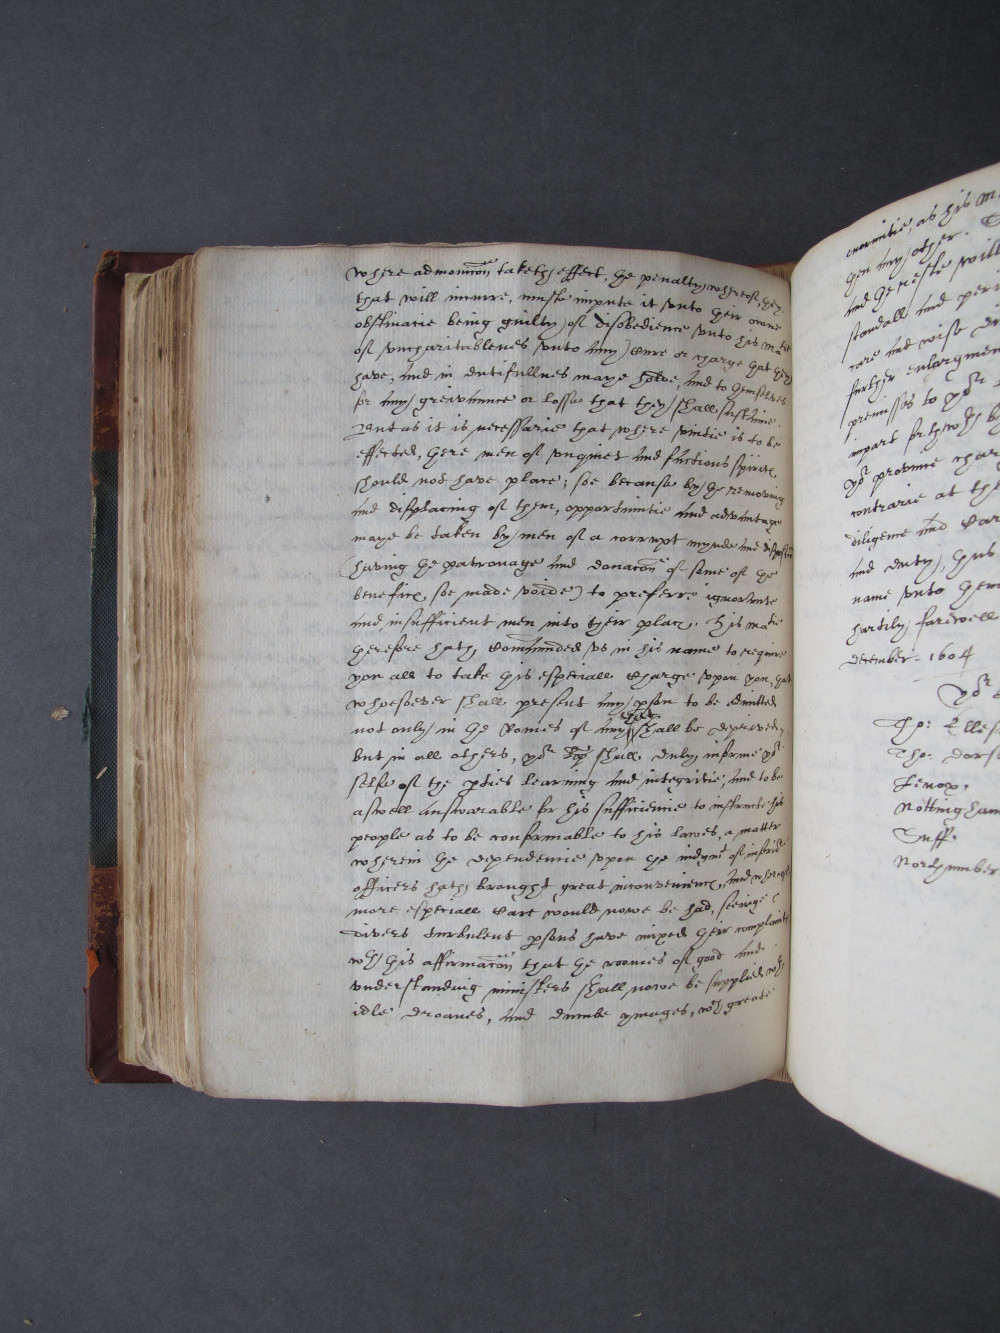 where admonic̃on taketh effect, the penalty whereof, they
that will incurre, muste impute it vnto their owne
obstinacie being guilty of disobedience vnto his Ma^tie
of vncharitablenes vnto any Cure or charge that they
have, and in dutifullnes maye have, and to themselves
for any greivance or losse that they shall susteine.
But as it is necessarie that where vnitie is to be
effected, there men of vnquiet and factious spirits
should not have place; soe because by the removing
and displacing of them, opportunitie and advantage
maye be taken by men of a corrupt mynde and
(having the patronage and donac̃on of some of the
benefices, soe made voide) to preferre ignorante
and insufficient men into their places. His Ma^tie
therefore hath Com̃anded vs in his name to require
you all to take this especiall Charge vpon you, that
whosoever shall present any pson to be admitted
not only in the Romes of any that shall be deprived
but in all others, yo^r Lo^p shall duly informe yo^r
selfe of the pties learning and integritie, and to be
aswell answarable for his sufficiencie to instructe his
people as to be confirmable to his lawes, a matter
wherein the dependencie vpon the iudgm^t of inferio^r
officers hath brought great inconvenience, and whereof
more especiall Care would nowe be had, seeinge
divers turbulent psons have mixed their complaints
wth this affirmac̃on that the roomes of good and
vnderstanding ministers shall nowe be supplied wth
idle droanes, and dumbe ymages, wth greate
enormitie, as his Ma
then any other.
and the neste will
scandall and peri
care and wise
further enlargmen
premisses to yo^r
impart forthwth
yo^r province
contrarie at the
diligence and Car
and duty, thus
name vnto them
hartily farewell
december. 1604
Yo^r
Tho: Elles
Tho. Dors
Lenox.
Notting ham
Suff.
Northumber